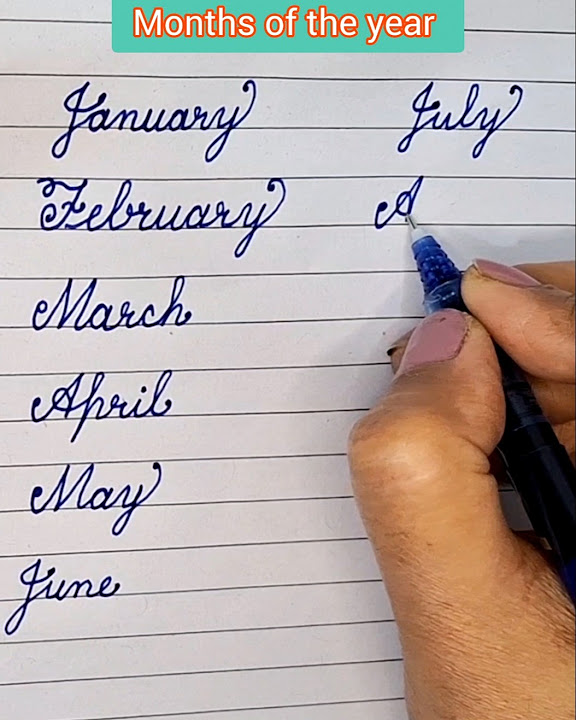 Months of the year
January July
February A
March
April
May
June